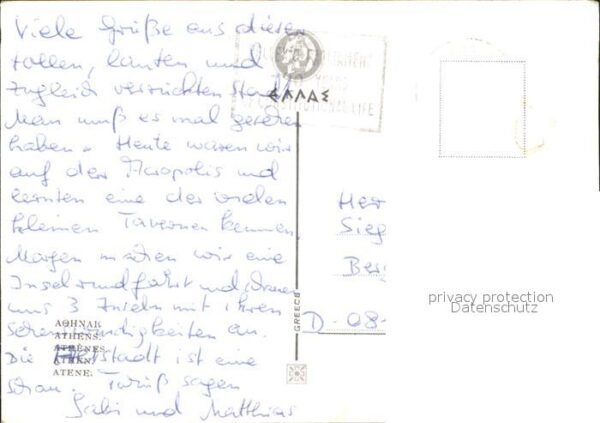 Viele Grüße aus dieser
tollen, lauten und
zugleich verrückten Stadt
Man muß es mal gesehen
haben. Heute waren wir
auf der Akropolis und
lernten eine der vielen
kleinen Tavernen kennen.
Morgen machen wir eine
Inselrundfahrt und schauen
uns 3 Inseln mit ihren
Sehenswürdigkeiten an.
Die Altstadt ist eine
Schau. Tschüß sagen
Gabi und Matthias
ΑΘΗΝΑΙ
ATHENS.
ATHÈNES
ATHEN.
ATENE.
PARLIAMENT
YEARS
OF CONSTITUTIONAL LIFE
ΕΛΛΑΣ
GREECE
Her
Sieg
Ber
D-08-
privacy protection
Datenschutz